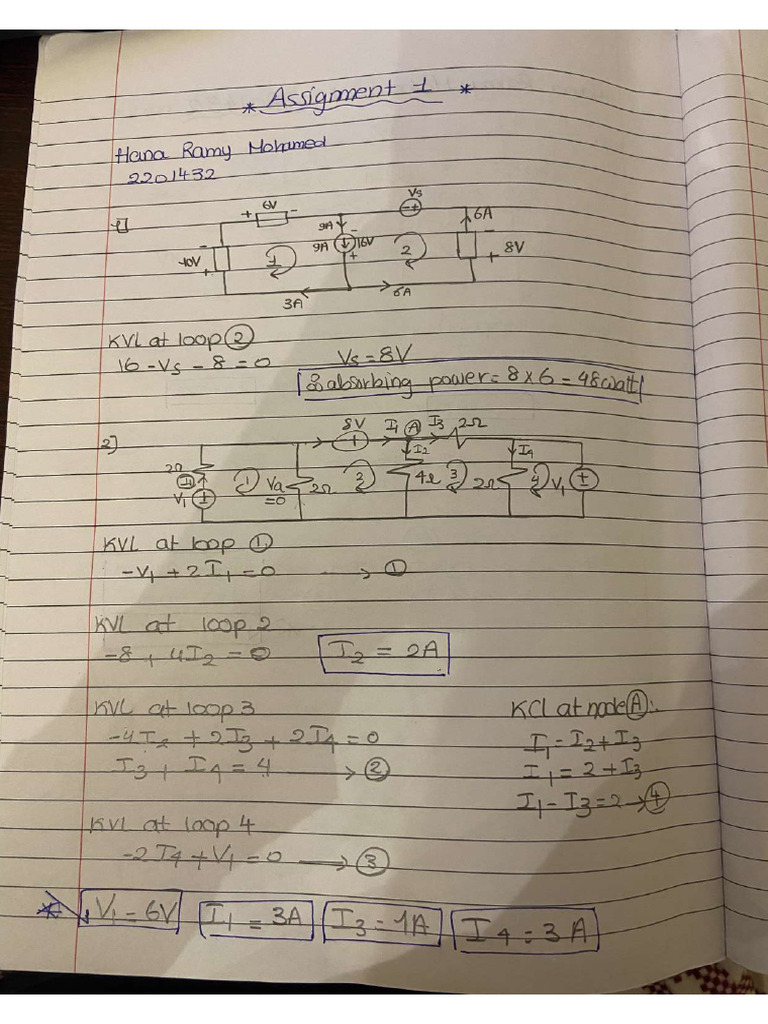 * Assigment 1 *
Hana Ramy Mohamed
2201432
1]
+ 6V -
Vs
- +
9A
6A
- 10V +
1
9A
16V
- +
2
- 8V +
3A
6A
KVL at loop ②
16 - Vs - 8 = 0 Vs = 8V
absorbing power = 8 x 6 = 48 watt
2]
8V I1 A I3 2Ω
2Ω I1 V1 1 Va = 0 2Ω 2 I2 4Ω 3 2Ω I4 4 V1
KVL at loop ①
-V1 + 2I1 = 0 → ①
KVL at loop 2
-8 + 4I2 = 0 I2 = 2A
KVL at loop 3
-4I2 + 2I3 + 2I4 = 0
I3 + I4 = 4 → ②
KCl at node Ⓐ:-
I1 = I2 + I3
I1 = 2 + I3
I1 - I3 = 2 → ④
KVL at loop 4
-2I4 + V1 = 0 → ③
V1 = 6V I1 = 3A I3 = 1A I4 = 3A